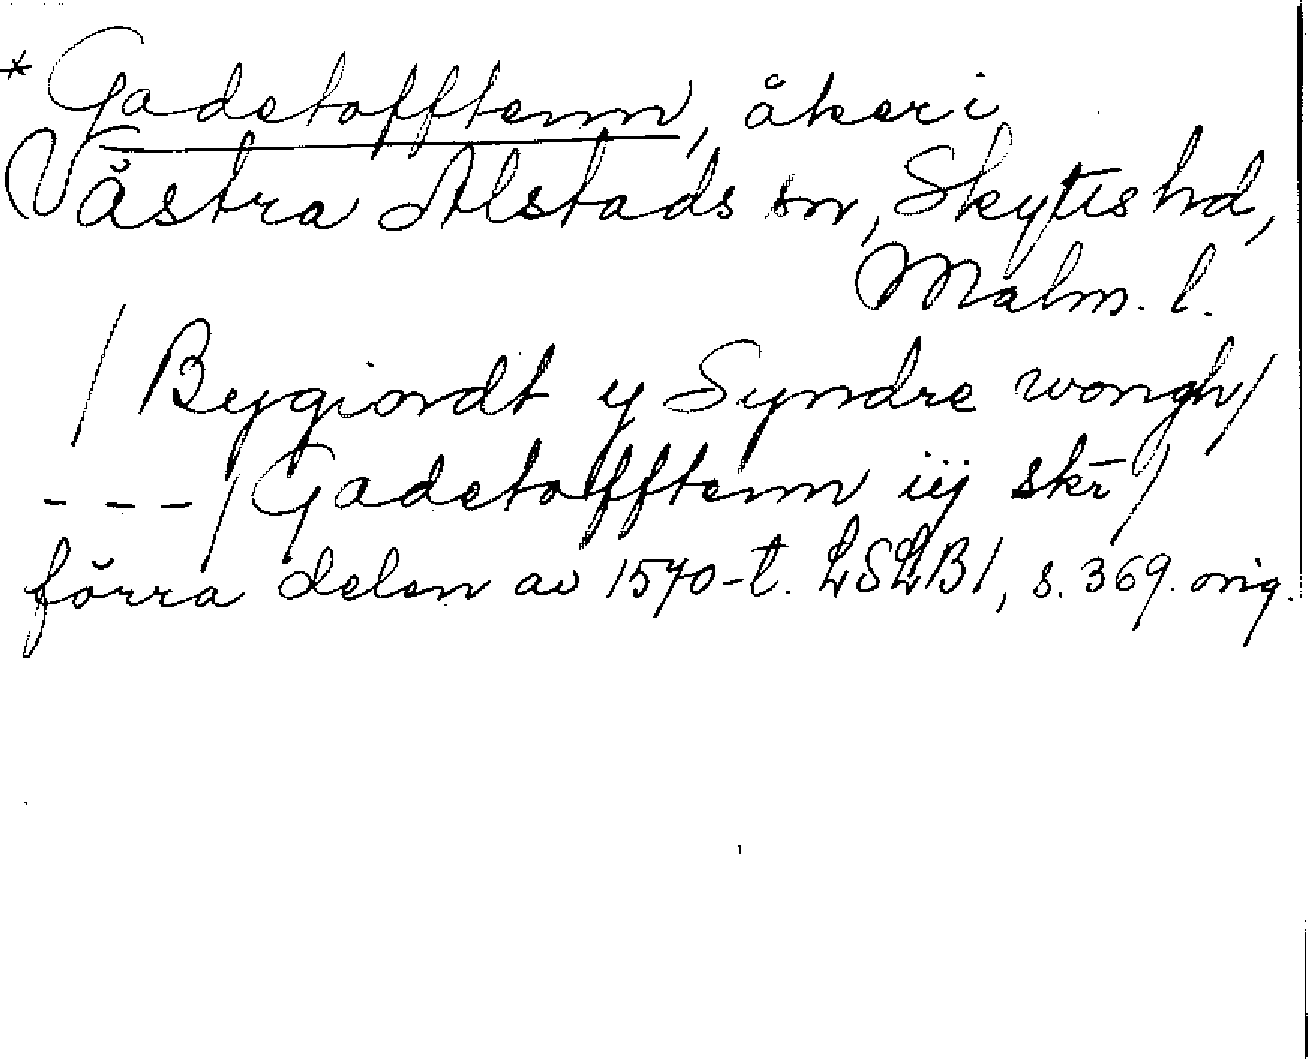 * Gadetofftenn, åker i
Västra Alstads sn, Skytts hd,
Malm. l.
/ Bygiordt y Syndre wongh /
--- / Gadetofftenn iij skr̄ /
förra delen av 1570-t. LSLB1, s. 369. orig.